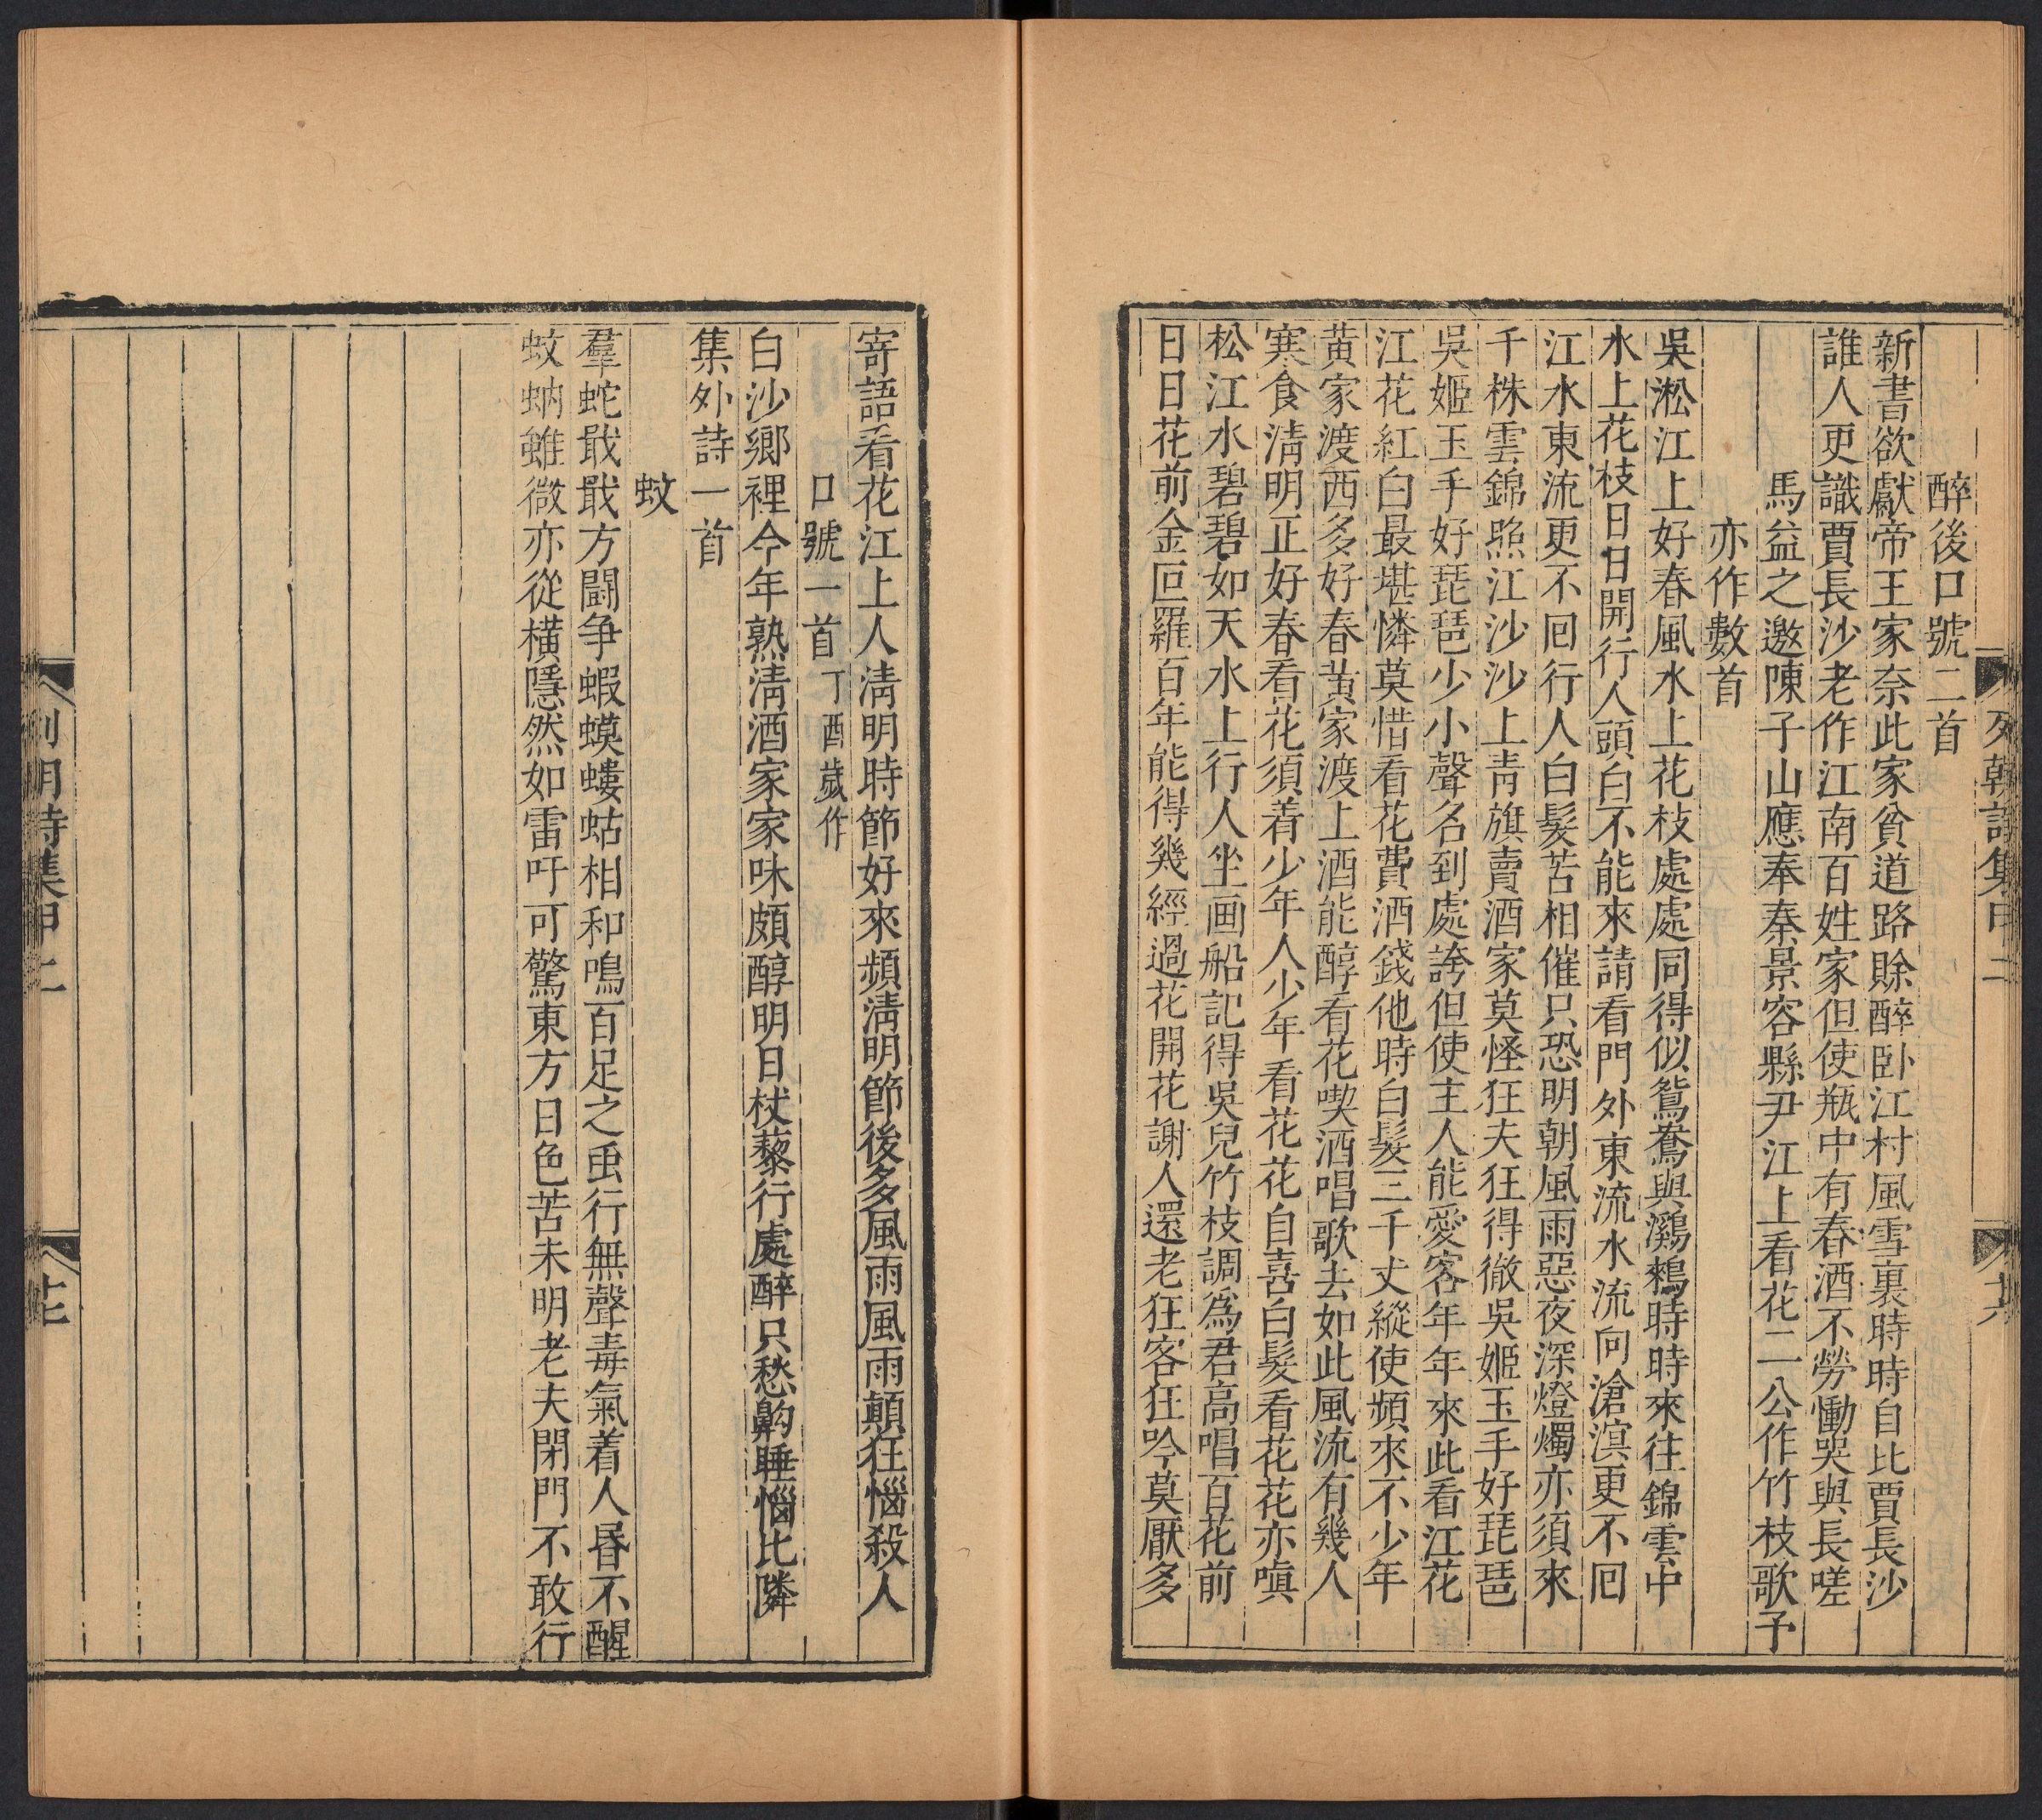 列朝詩集甲二
廿六
醉後口號二首
新書欲獻帝王家奈此家貧道路賒醉卧江村風雪裏時時自比賈長沙
誰人更識賈長沙老作江南百姓家但使瓶中有春酒不勞慟哭與長嗟
馬益之邀陳子山應奉秦景容縣尹江上看花二公作竹枝歌予
亦作數首
吳淞江上好春風水上花枝處處同得似鴛鴦與鸂鶒時時來往錦雲中
水上花枝日日開行人頭白不能來請看門外東流水流向滄溟更不回
江水東流更不回行人白髮苦相催只恐明朝風雨惡夜深燈燭亦須來
千株雲錦照江沙沙上青旗賣酒家莫怪狂夫狂得徹吳姬玉手好琵琶
吳姬玉手好琵琶少小聲名到處誇但使主人能愛客年年來此看江花
江花紅白最堪憐莫惜看花費酒錢他時白髮三千丈縱使頻來不少年
黄家渡西多好春黄家渡上酒能醇看花喫酒唱歌去如此風流有幾人
寒食清明正好春看花須着少年人少年看花花自喜白髮看花花亦嗔
松江水碧碧如天水上行人坐画船記得吳兒竹枝調爲君高唱百花前
日日花前金叵羅百年能得幾經過花開花謝人還老狂客狂吟莫厭多
寄語看花江上人清明時節好來頻清明節後多風雨風雨顛狂惱殺人
口號一首丁酉歲作
白沙鄉裡今年熟清酒家家味頗醇明日杖藜行處醉只愁齁睡惱比隣
集外詩一首
蚊
羣蛇戢戢方闘争蝦蟆螻蛄相和鳴百足之䖝行無聲毒氣着人昏不醒
蚊蚋雖微亦從橫隱然如雷吁可驚東方日色苦未明老夫閉門不敢行
列朝詩集甲二
廿七